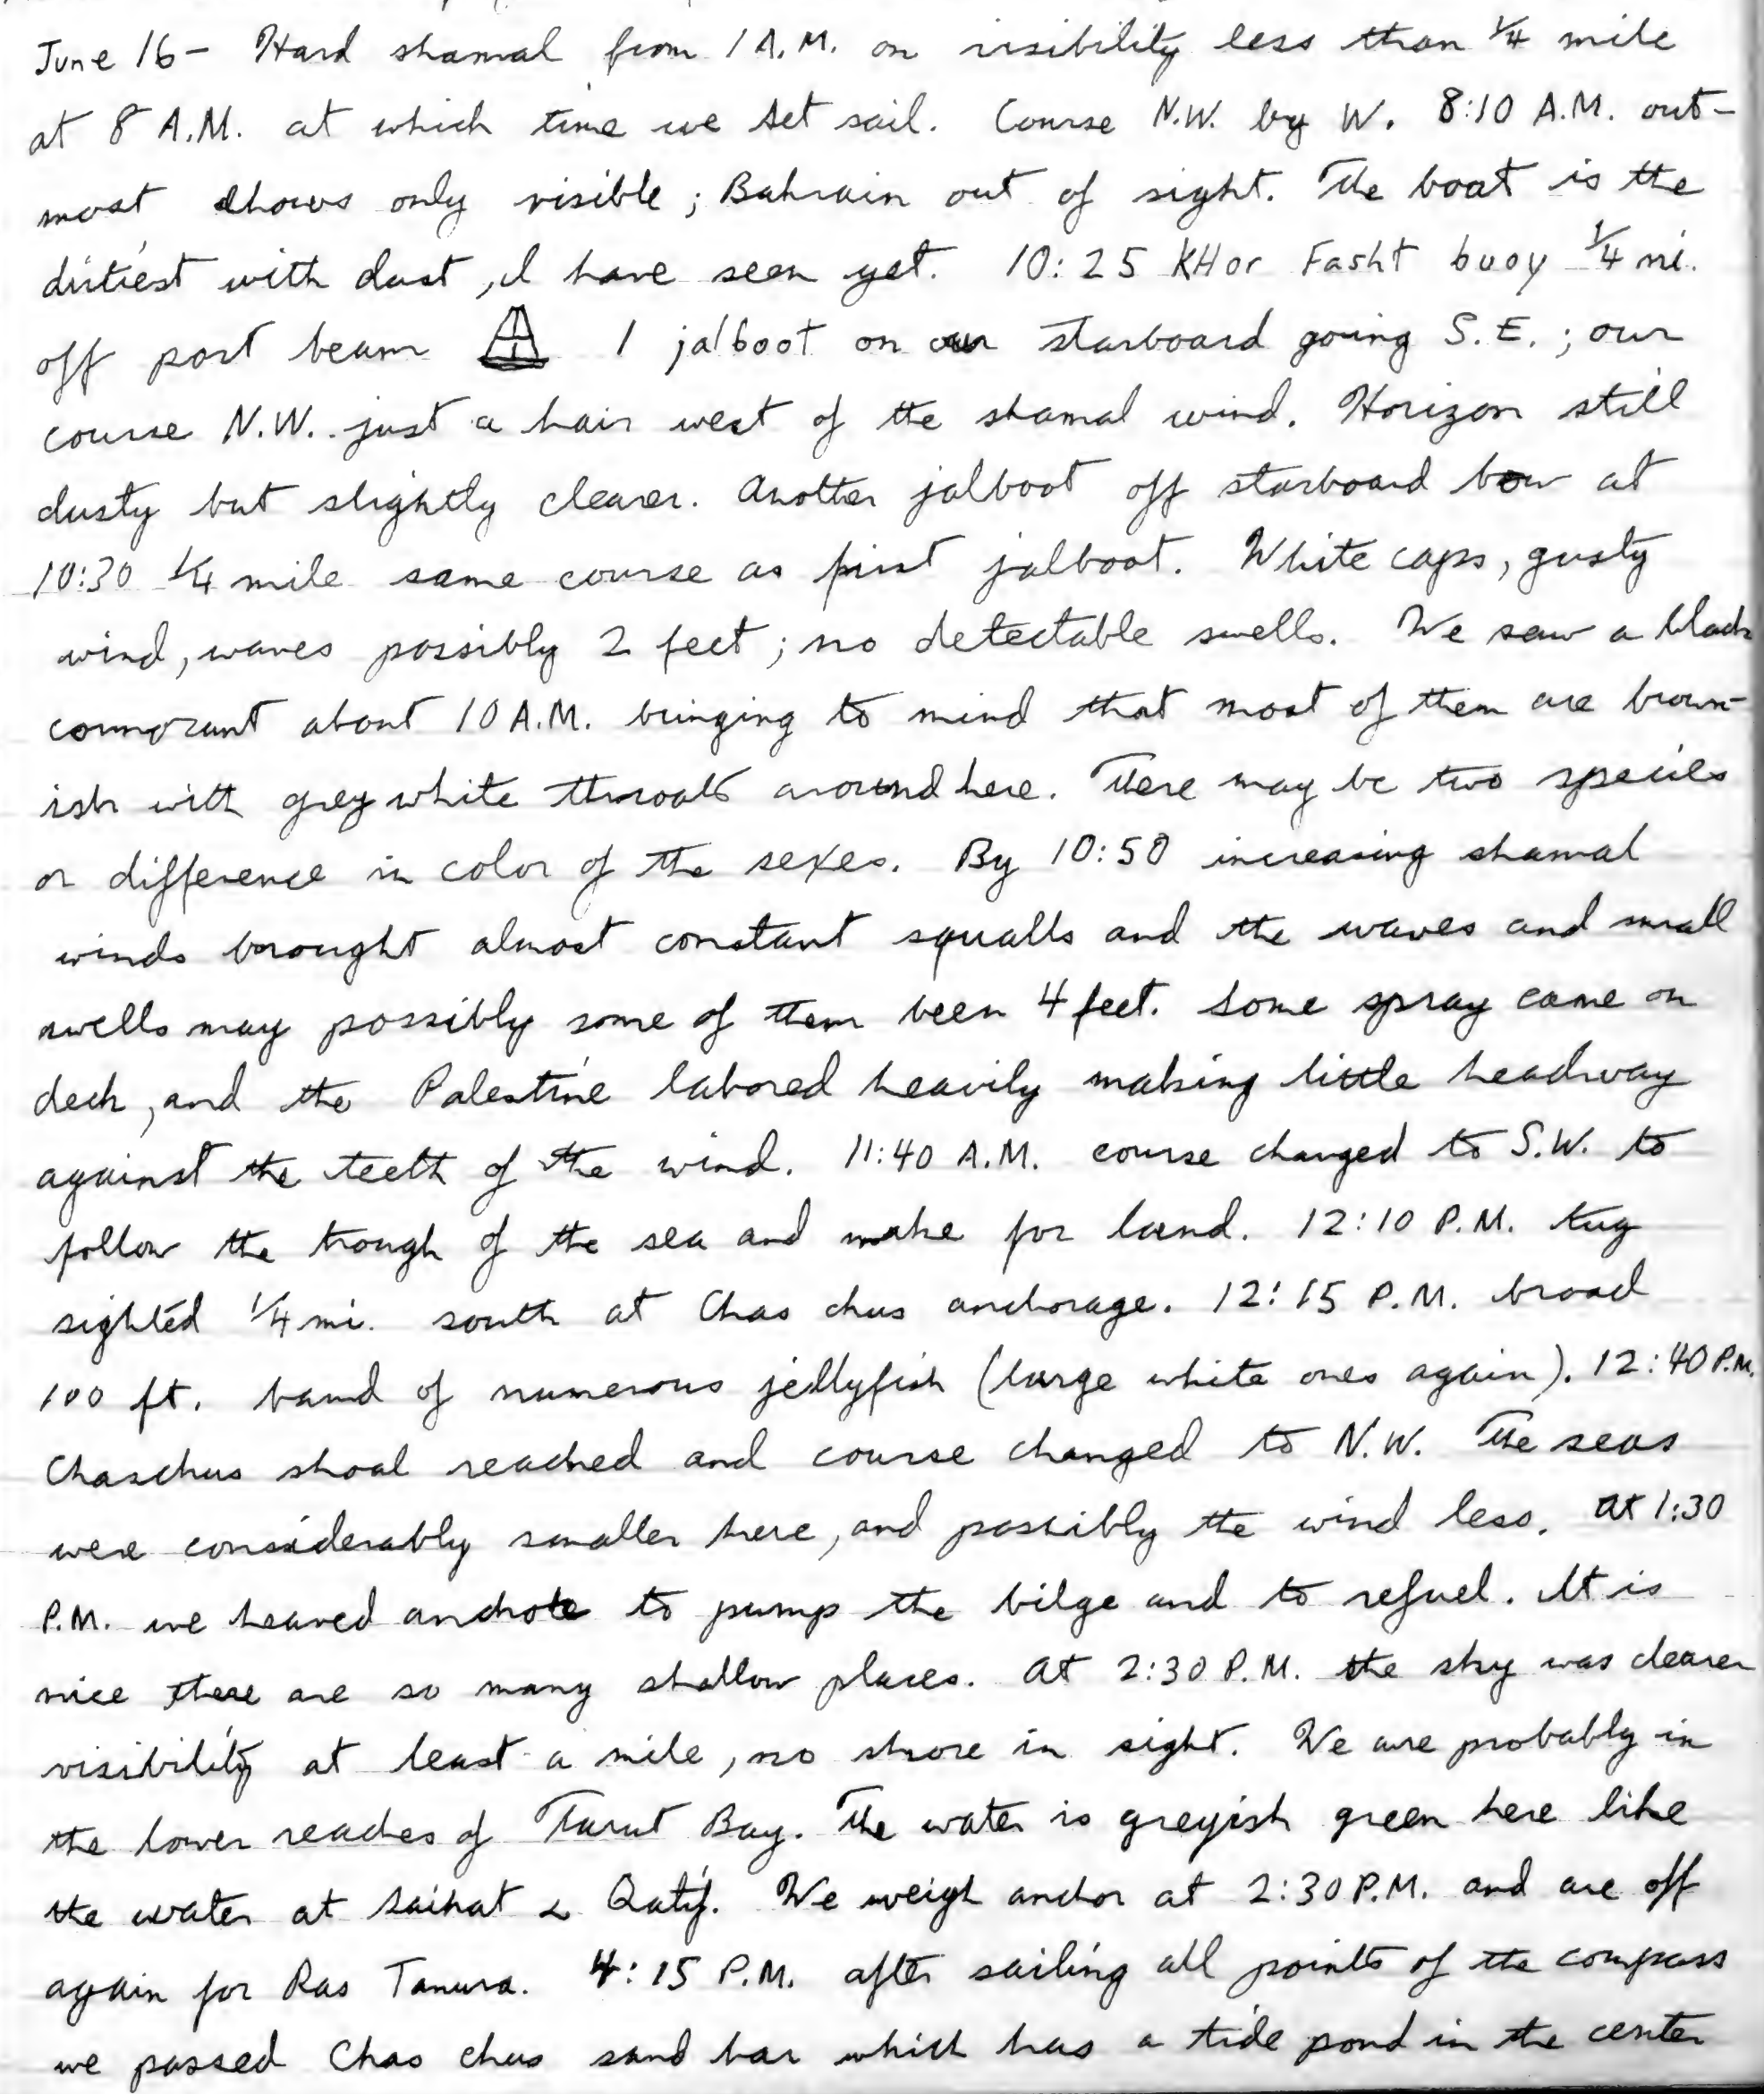 June 16 - Hard shamal from 1 A.M. on visibility less than 1/4 mile
at 8 A.M. at which time we set sail. Course N.W. by W. 8:10 A.M. out-
most dhows only visible; Bahrain out of sight. The boat is the
dirtiest with dust, I have seen yet. 10:25 KHor Fasht buoy 1/4 mi.
off port beam 1 jalboot on our starboard going S.E.; our
course N.W. just a hair west of the shamal wind. Horizon still
dusty but slightly clearer. Another jalboot off starboard bow at
10:30 1/4 mile same course as first jalboot. White caps, gusty
wind, waves possibly 2 feet; no detectable swells. We saw a black
cormorant about 10 A.M. bringing to mind that most of them are brown-
ish with grey white throats around here. There may be two species
or difference in color of the sexes. By 10:50 increasing shamal
winds brought almost constant squalls and the waves and small
swells may possibly some of them been 4 feet. Some spray came on
deck, and the Palestine labored heavily making little headway
against the teeth of the wind. 11:40 A.M. course changed to S.W. to
follow the trough of the sea and make for land. 12:10 P.M. tug
sighted 1/4 mi. south at Chas chus anchorage. 12:15 P.M. broad
100 ft. band of numerous jellyfish (large white ones again). 12:40 P.M.
Chaschus shoal reached and course changed to N.W. The seas
were considerably smaller here, and possibly the wind less. At 1:30
P.M. we heaved anchote to pump the bilge and to refuel. It is
nice there are so many shallow places. At 2:30 P.M. the sky was clearer
visibility at least a mile, no shore in sight. We are probably in
the lower reaches of Tarut Bay. The water is greyish green here like
the water at Saihat & Qatif. We weigh anchor at 2:30 P.M. and are off
again for Ras Tanura. 4:15 P.M. after sailing all points of the compass
we passed Chas chus sand bar which has a tide pond in the center